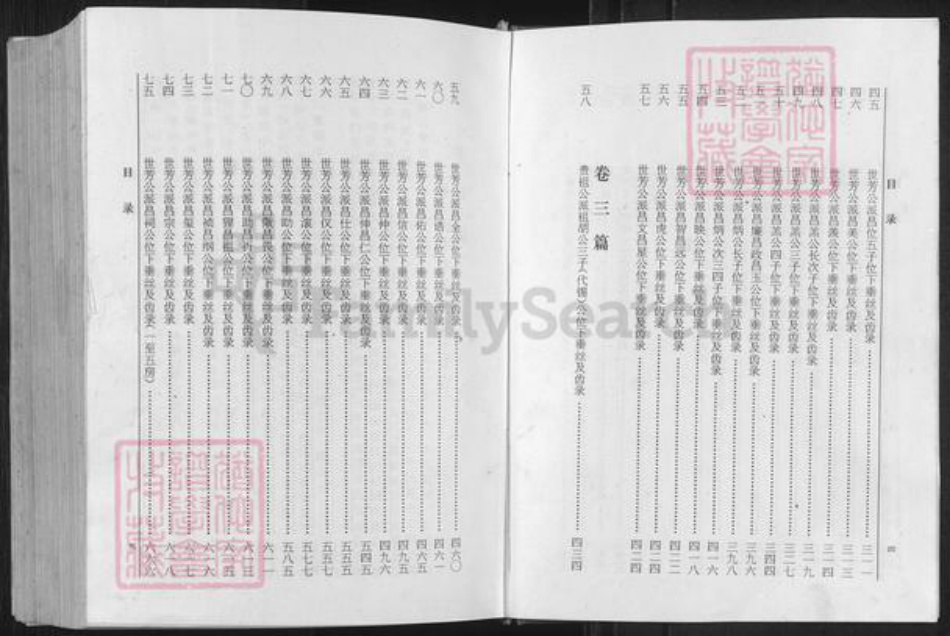 目录
四五 世芳公派昌位五子位下垂丝及齿录 三一一
四六 世芳公派昌美公位下垂丝及齿录 三一三
四七 世芳公派昌羡公位下垂丝及齿录 三一四
四八 世芳公派昌羔公长次子位下垂丝及齿录 三一九
四九 世芳公派昌羔公三子位下垂丝及齿录 三二七
世芳公派昌羔公四子位下垂丝及齿录 三四四
世芳公派昌廉昌政昌玉公位下垂丝及齿录 三九六
世芳公派昌炳公长子位下垂丝及齿录 三九八
世芳公派昌炳公次三四子位下垂丝及齿录 四一六
五四 世芳公派昌映公位下垂丝及齿录 四一八
五五 世芳公派昌智昌远公位下垂丝及齿录 四二二
五六 世芳公派昌虎公位下垂丝及齿录 四二四
五七 世芳公派昌文昌星公位下垂丝及齿录 四二四
卷三篇
五八 贵祖公派祖胡公三子(代锡)公位下垂丝及齿录 四三四
四
五九 世芳公派昌全公位下垂丝及齿录 四六〇
六〇 世芳公派昌诰公位下垂丝及齿录 四六一
六一 世芳公派昌佑公位下垂丝及齿录 四六五
六二 世芳公派昌信公位下垂丝及齿录 四九五
六三 世芳公派昌仲公位下垂丝及齿录 四九六
六四 世芳公派昌俸昌仁公位下垂丝及齿录 五四五
六五 世芳公派昌仕公位下垂丝及齿录 五五五
六六 世芳公派昌仪公位下垂丝及齿录 五五七
六七 世芳公派昌滚公位下垂丝及齿录 五七七
六八 世芳公派昌助公位下垂丝及齿录 五八五
六九 世芳公派昌 公位下垂丝及齿录 六一一
七〇 世芳公派昌 公位下垂丝及齿录
七一 世芳公派昌 公位下垂丝及齿录
七二 世芳公派昌 公位下垂丝及齿录
七三 世芳公派昌 公位下垂丝及齿录
七四 世芳公派昌宗公位下垂丝及齿录
七五 世芳公派昌祠公位下垂丝及齿录(一至五房)
目录